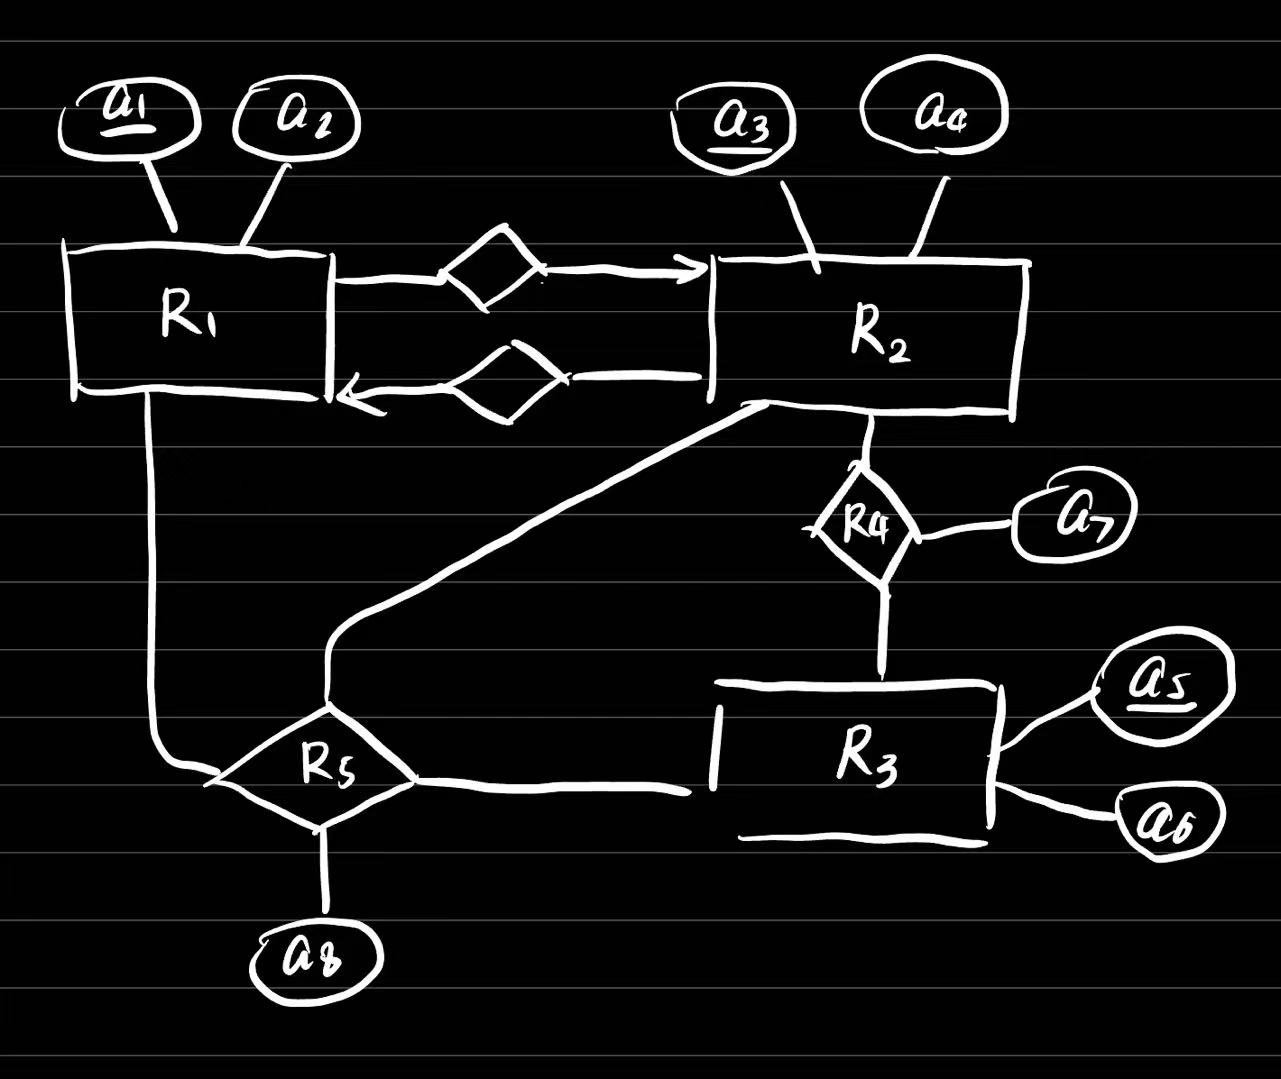 a1
a2
a3
a4
R1
R2
R4
a7
a5
R3
R5
a6
a8